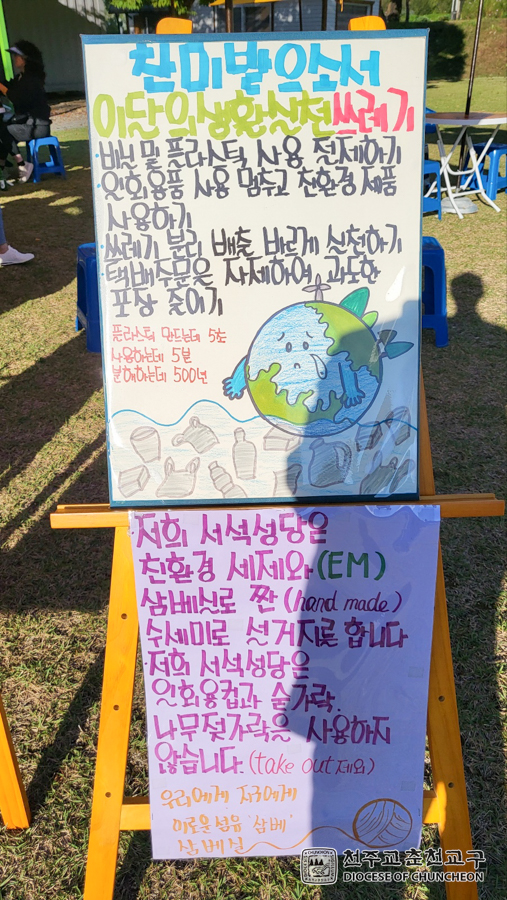 찬미받으소서
이달의 생활실천 쓰레기
비닐 및 플라스틱 사용 절제하기
일회용품 사용 멈추고 친환경 제품
사용하기
쓰레기 분리 배출 바르게 실천하기
택배주문을 자제하여 과도한
포장 줄이기
플라스틱 만드는데 5초
사용하는데 5분
분해하는데 500년
저희 서석성당은
친환경 세제와 (EM)
삼베실로 짠 (hand made)
수세미로 설거지를 합니다
저희 서석성당은
일회용컵과 숟가락,
나무젓가락을 사용하지
않습니다. (take out 제외)
우리에게 지구에게
이로운 섬유 '삼베'
삼베실
천주교춘천교구
DIOCESE OF CHUNCHEON